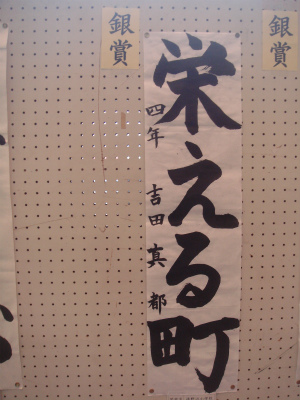 銀賞
栄える町
四年 吉田真都
銀賞